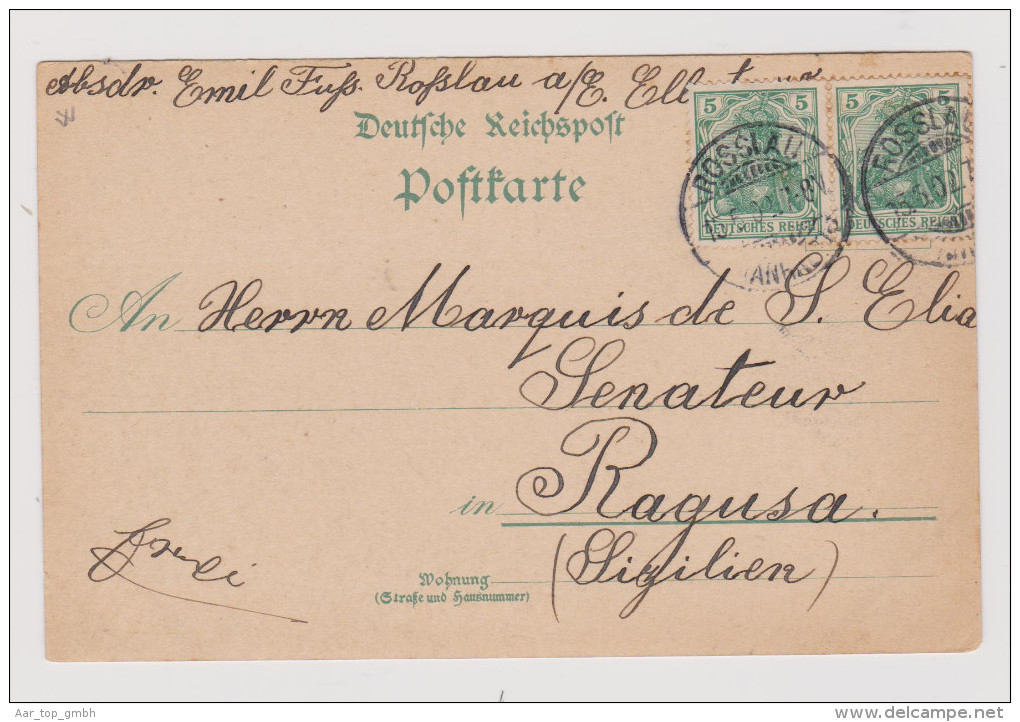 Absdr. Emil Fuss. Rosslau a/E.
Deutsche Reichspost
Postkarte
5 5 5 5
DEUTSCHES REICH DEUTSCHES REICH
ROSSLAU
ROSSLAU
(ANHALT)
An Herrn Marquis de S. Elia
Senateur
in Ragusa.
(Sizilien)
Wohnung
(Straße und Hausnummer)
Aar_top_gmbh
delcampe.net